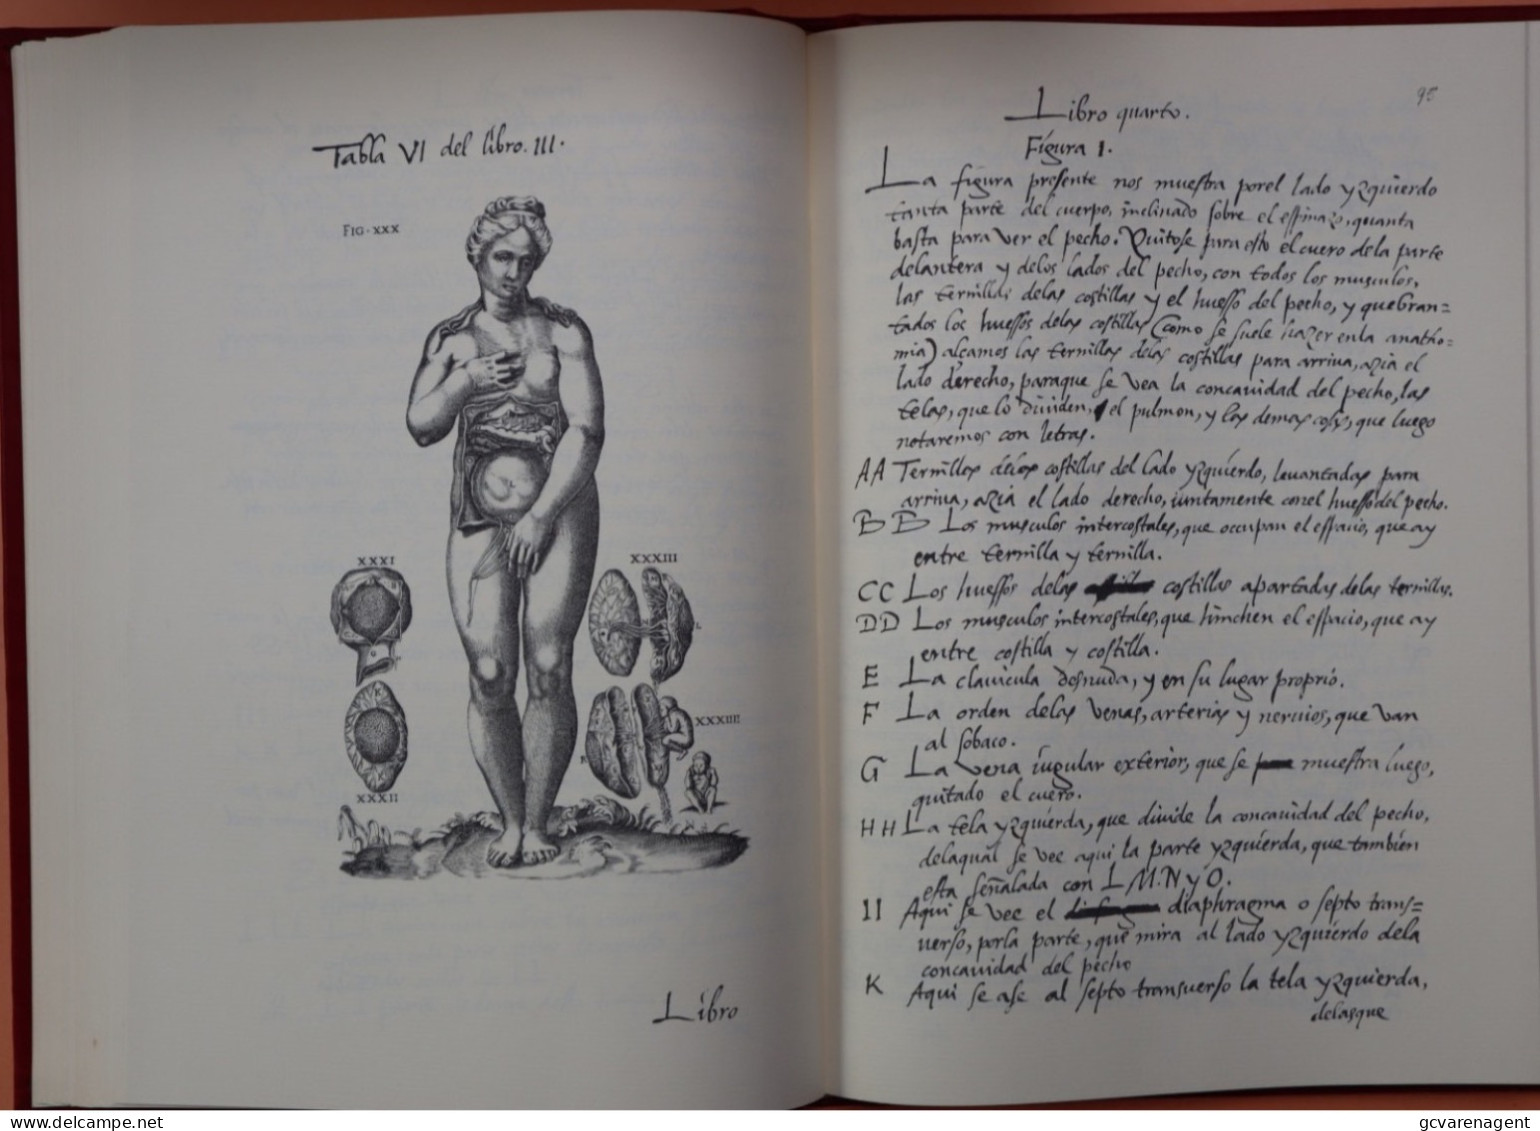 Tabla VI del libro. III.
FIG. XXX
XXXI
XXXIII
XXXIIII
XXXII
Libro
95
Libro quarto.
Figura I.
La figura presente nos muestra porel lado yzquierdo
tanta parte del cuerpo, inclinado sobre el espinazo, quanta
basta para ver el pecho. Quitose para esto el cuero dela parte
delantera y delos lados del pecho, con todos los musculos,
las ternillas delas costillas y el huesso del pecho, y quebran=
tados los huessos delas costillas (como se suele hazer enla anatho=
mia) alçamos las ternillas delas costillas para arriua, azia el
lado derecho, paraque se vea la concauidad del pecho, las
telas, que lo diuiden, el pulmon, y las demas cosas, que luego
notaremos con letras.
AA Ternillas delas costillas del lado yzquierdo, leuantadas para
arriua, azia el lado derecho, iuntamente conel huesso del pecho.
B B Los musculos intercostales, que occupan el espacio, que ay
entre ternilla y ternilla.
CC Los huessos delas costillas apartadas delas ternillas.
DD Los musculos intercostales, que hinchen el espacio, que ay
entre costilla y costilla.
E La clauicula desnuda, y en su lugar proprio.
F La orden delas venas, arterias y neruios, que van
al sobaco.
G La vena iugular exterior, que se muestra luego,
quitado el cuero.
H H La tela yzquierda, que diuide la concauidad del pecho,
delaqual se vee aqui la parte yzquierda, que tambien
esta señalada con L M. N y O.
II Aqui se vee el diaphragma o septo trans=
uerso, porla parte, que mira al lado yzquierdo dela
concauidad del pecho
K Aqui se ase al septo transuerso la tela yzquierda,
delasque
www.delcampe.net
gcvarenagent